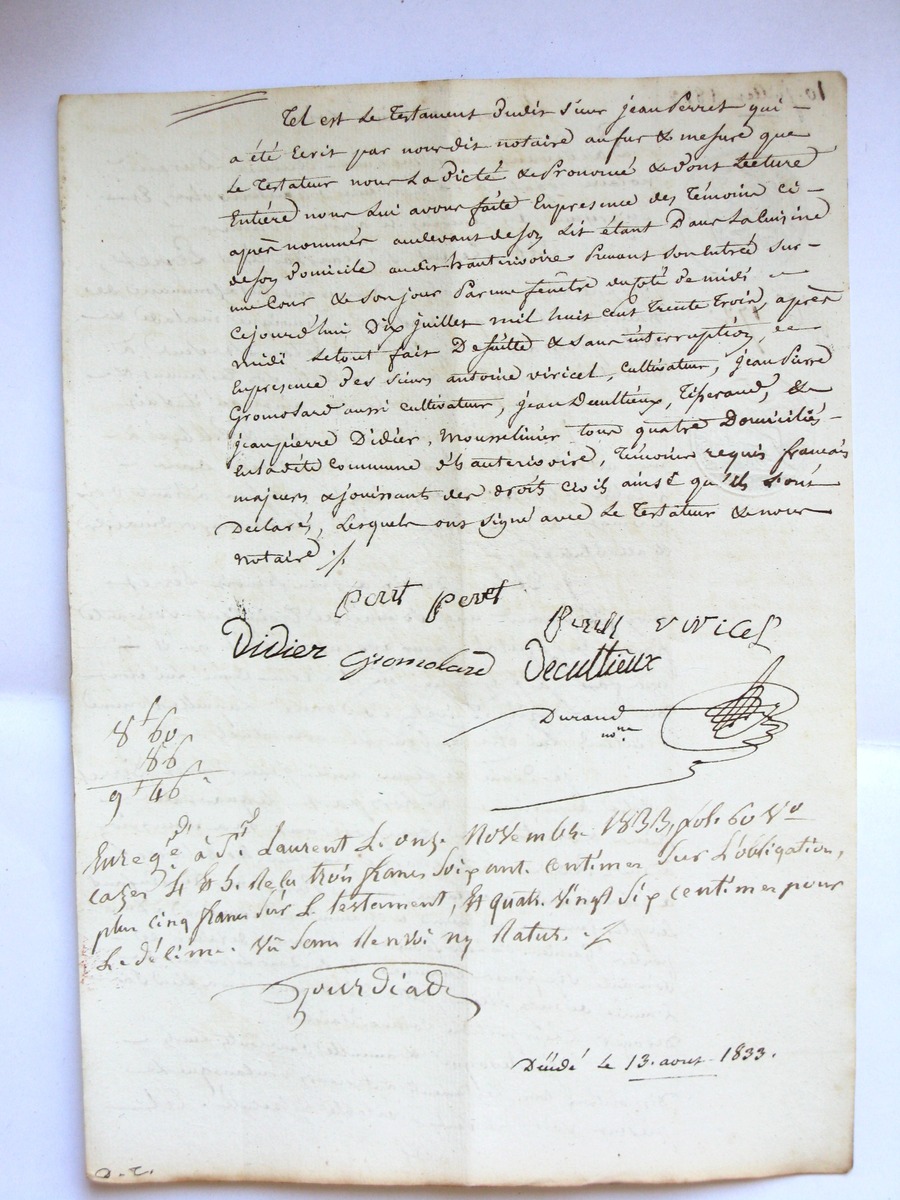 Tel est le testament dudit sieur jean Perret qui
a été Ecrit par nousdit notaire aufur & mesure que
le testateur nous la dicté & Prononcé & dont lecture
Entière nous lui avons faite Enpresence des témoins ci-
après nommés audevant deson lit étant dans la cuisine
deson domicile audit hauterivoire Prenant son Entrée sur
une Cour & son jour Par une fenêtre du coté de midi
cejourd'hui dix juillet mil huit cent trente trois, après
midi le tout fait de suitte & sans interruption,
Enpresence des sieurs antoine viricel, cultivateur, jean Pierre
Gromolard aussi cultivateur, jean Decultieux, Tisserand, &
jean pierre Didier, mousselinier tous quatre domiciliés
Enladite commune d'hauterivoire, témoins requis français
majeurs & jouissants des droits civils ainsi qu'ils l'ont
déclarés, lesquels ont signé avec le testateur & nous
notaire ./.
peret
viricel
Didier Gromolard Decultieux
Durand
nore
8f 60
86
9f 46
Enregé. à St. Laurent le onze Novembre 1833, fol. 60 Vo
cazes 4 & 5. Reçu trois francs soixante centimes sur l'obligation,
plus cinq francs sur le testament, & quatre vingt six centimes pour
le décime. Vû sans Renvoi ny Rature.
Gourdiad
Décédé le 13. aout 1833.
D. C.